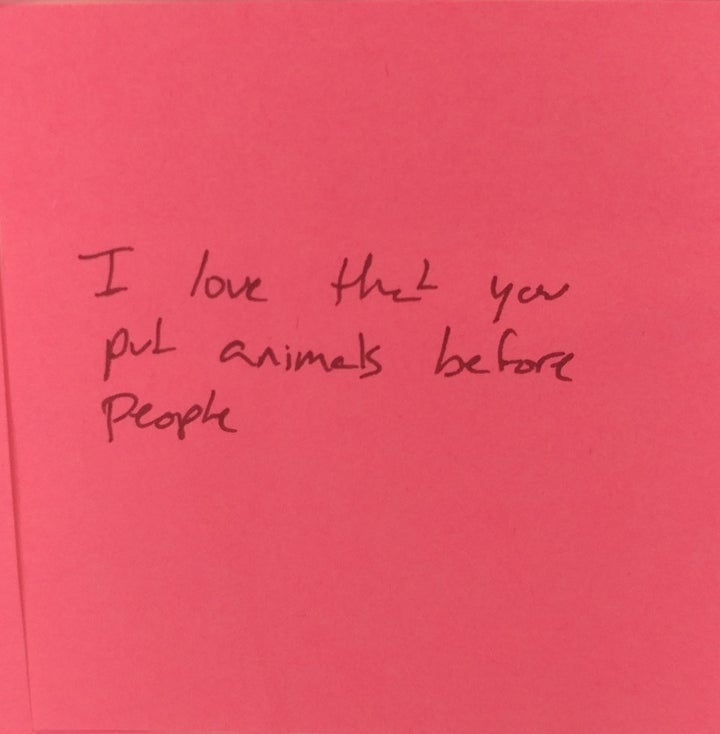 I love that you
put animals before
people